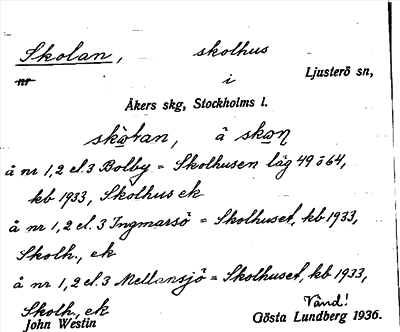 Skolan, skolhus
nr i Ljusterö sn,
Åkers skg, Stockholms l.
å skon
å nr 1, 2 el. 3 Bolby = Skolhusen läg 49 o 64,
kb 1933, Skolhus ek
å nr 1, 2 el. 3 Ingmarsö = Skolhuset, kb 1933,
Skolh., ek
å nr 1, 2 el. 3 Mellansjö = Skolhuset, kb 1933,
Skolh., ek Vänd!
John Westin Gösta Lundberg 1936.